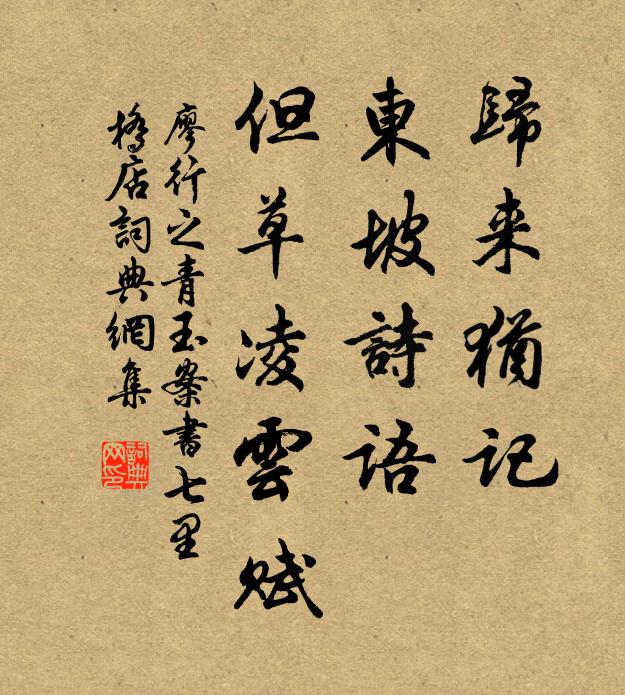 歸来猶记
東坡詩語
但草凌雲赋
廖行之青玉案書七里
橋店詞典網集
詞典网印